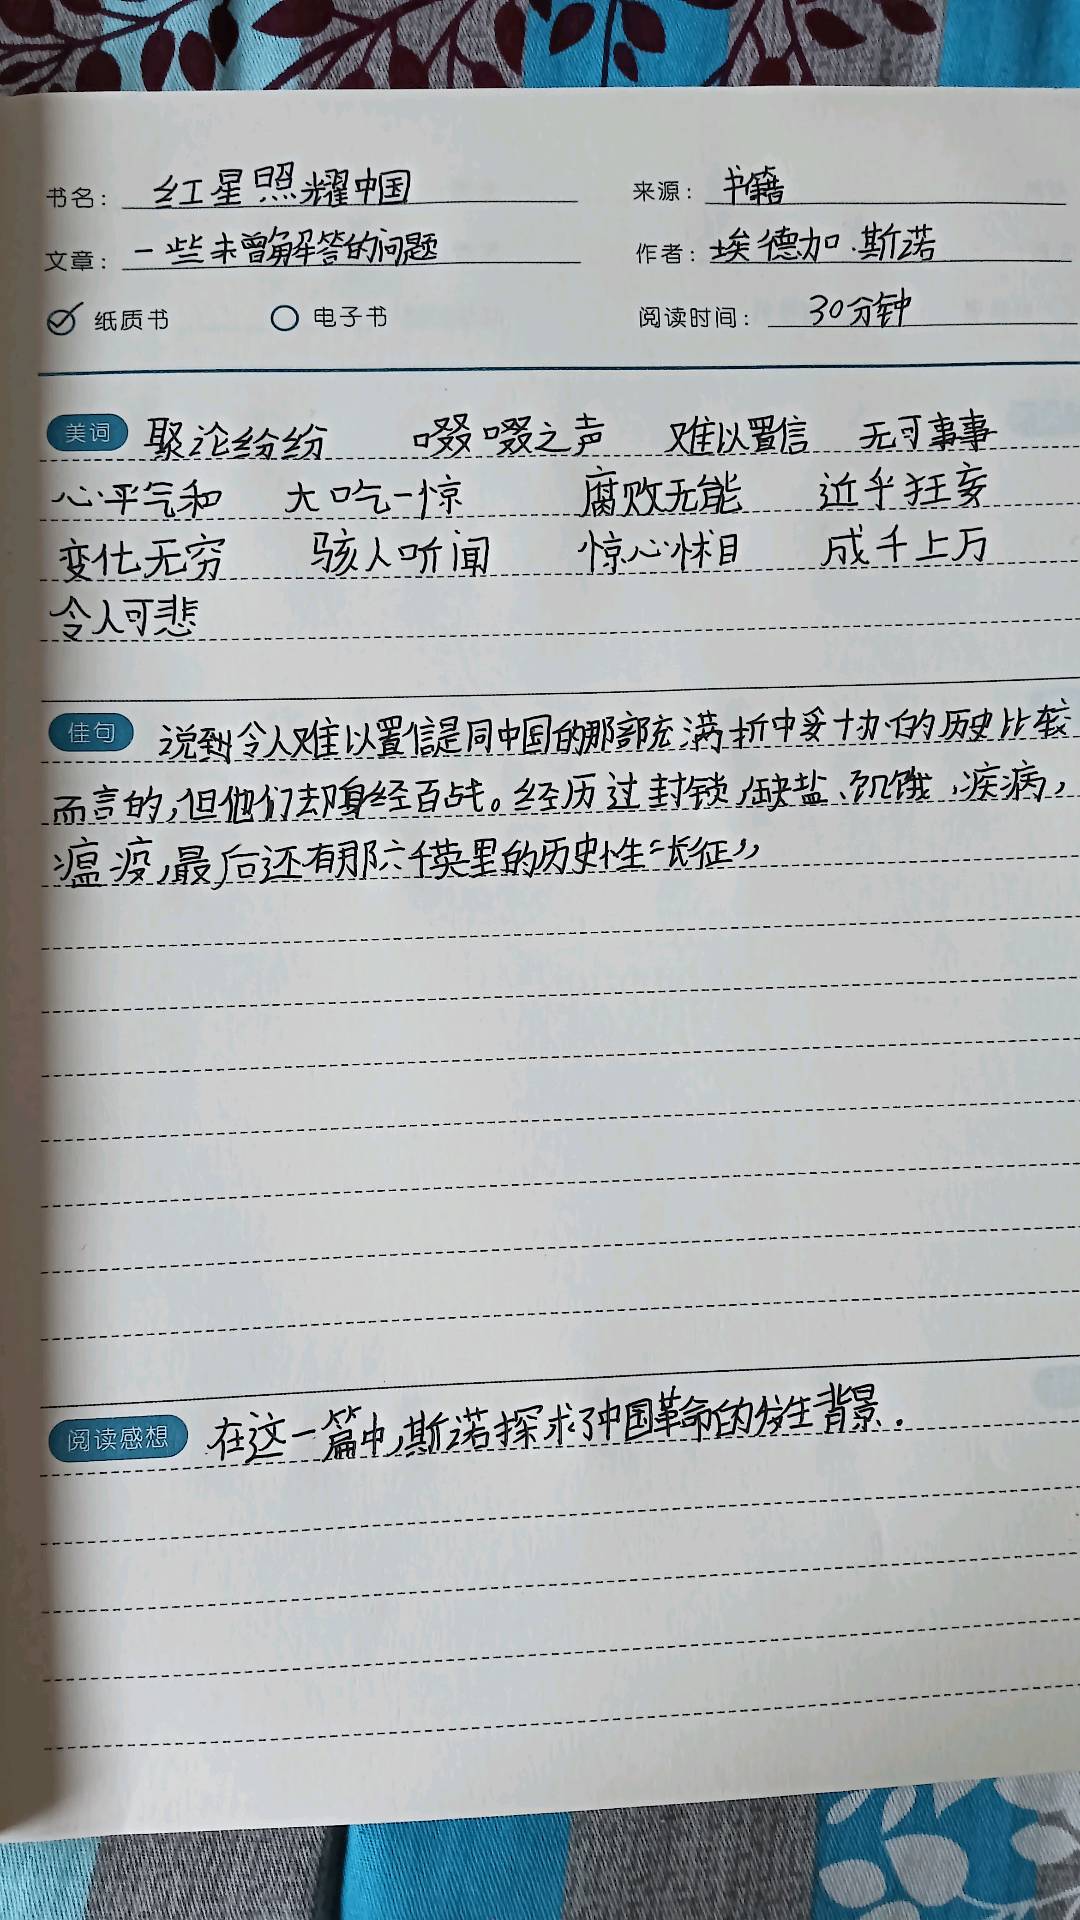 书名： 红星照耀中国 来源： 书籍
文章： 一些未曾解答的问题 作者： 埃德加·斯诺
纸质书 电子书 阅读时间： 30分钟
美词 聚论纷纷 啜啜之声 难以置信 无可事事
心平气和 大吃一惊 腐败无能 近乎狂妄
变化无穷 骇人听闻 惊心怵目 成千上万
令人可悲
佳句 说到令人难以置信是同中国的那部充满折中妥协的历史比较
而言的，但他们却身经百战。经历过封锁，缺盐、饥饿，疾病，
瘟疫，最后还有那六千英里的历史性“长征”
阅读感想 在这一篇中，斯诺探求了中国革命的发生背景.